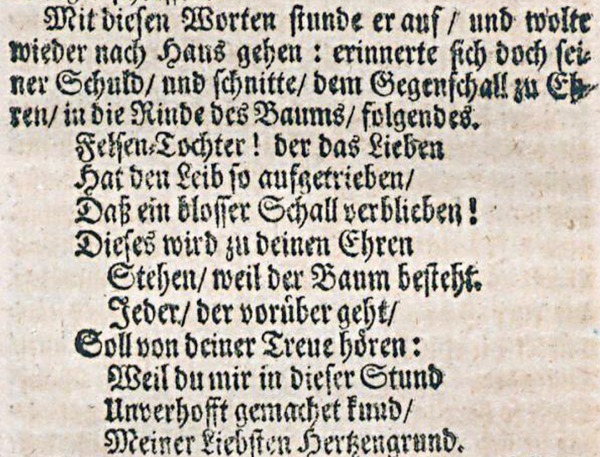 Mit diesen Worten stunde er auf / und wolte
wieder nach Haus gehen : erinnerte sich doch sei-
ner Schuld/ und schnitte/ dem Gegenschall zu Eh-
ren/ in die Rinde des Baums/ folgendes.
Felsen-Tochter ! der das Lieben
Hat den Leib so aufgetrieben/
Daß ein blosser Schall verblieben !
Dieses wird zu deinen Ehren
Stehen/ weil der Baum besteht.
Jeder/ der vorüber geht/
Soll von deiner Treue hören :
Weil du mir in dieser Stund
Unverhofft gemachet kund/
Meiner Liebsten Hertzengrund.